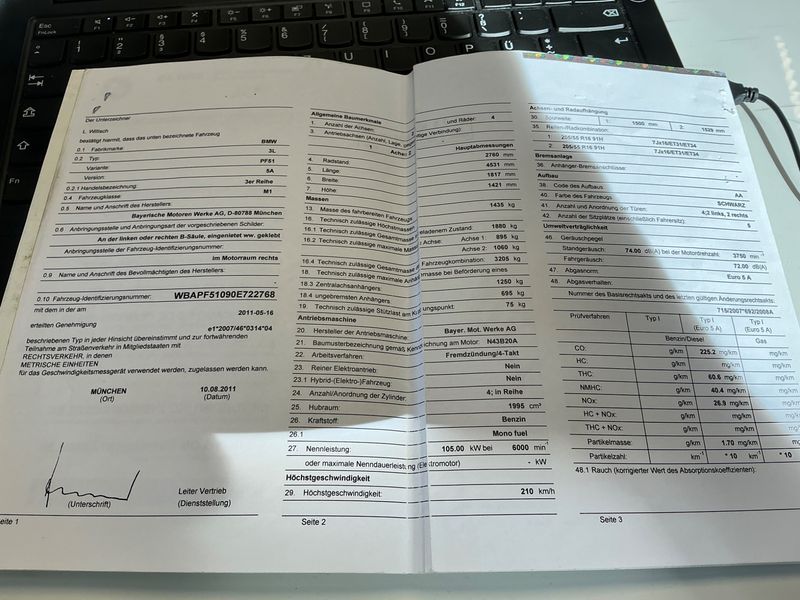 Der Unterzeichner
L. Willisch
bestätigt hiermit, dass das unten bezeichnete Fahrzeug
0.1 Fabrikmarke: BMW
0.2 Typ: 3L
Variante: PF51
Version: 5A
0.2.1 Handelsbezeichnung: 3er Reihe
0.4 Fahrzeugklasse M1
0.5 Name und Anschrift des Herstellers:
Bayerische Motoren Werke AG, D-80788 München
0.6 Anbringungsstelle und Anbringungsart der vorgeschriebenen Schilder:
An der linken oder rechten B-Säule, eingenietet ww. geklebt
Anbringungsstelle der Fahrzeug-Identifizierungsnummer:
im Motorraum rechts
0.9 Name und Anschrift des Bevollmächtigten des Herstellers:
0.10 Fahrzeug-Identifizierungsnummer: WBAPF51090E722768
mit dem in der am 2011-05-16
erteilten Genehmigung e1*2007/46*0314*04
beschriebenen Typ in jeder Hinsicht übereinstimmt und zur fortwährenden
Teilnahme am Straßenverkehr in Mitgliedstaaten mit
RECHTSVERKEHR, in denen
METRISCHE EINHEITEN
für das Geschwindigkeitsmessgerät verwendet werden, zugelassen werden kann.
MÜNCHEN 10.08.2011
(Ort) (Datum)
Leiter Vertrieb
(Unterschrift) (Dienststellung)
eite 1
Allgemeine Baumerkmale
1. Anzahl der Achsen: und Räder: 4
3. Antriebsachsen (Anzahl, Lage, tige Verbindung)
1
Hauptabmessungen
4. Radstand: 2760 mm
5. Länge: 4531 mm
6. Breite: 1817 mm
7. Höhe 1421 mm
Massen
13. Masse des fahrbereiten Fahrzeugs 1435 kg
16. Technisch zulässige Höchstmassen
16.1 Technisch zulässige Gesamtmasse eladenem Zustand: 1880 kg
16.2 Technisch zulässige maximale Achse Achse 1: 895 kg
Achse 2: 1060 kg
16.4 Technisch zulässige Gesamtmasse Fahrzeugkombination: 3205 kg
18. Technisch zulässige maximale Anhä masse bei Beförderung eines
18.3 Zentralachsanhängers 1250 kg
18.4 ungebremsten Anhängers 695 kg
19. Technisch zulässige Stützlast am Ku ungspunkt: 75 kg
Antriebsmaschine
20. Hersteller der Antriebsmaschine: Bayer. Mot. Werke AG
21. Baumusterbezeichnung gemäß Kennzeichnung am Motor: N43B20A
22. Arbeitsverfahren: Fremdzündung/4-Takt
23. Reiner Elektroantrieb: Nein
23.1 Hybrid-(Elektro-)Fahrzeug Nein
24. Anzahl/Anordnung der Zylinder: 4; in Reihe
25. Hubraum: 1995 cm³
26. Kraftstoff: Benzin
26.1 Mono fuel
27. Nennleistung: 105.00 kW bei 6000 min-1
oder maximale Nenndauerleistung (Elektromotor) - kW
Höchstgeschwindigkeit
29. Höchstgeschwindigkeit: 210 km/h
Seite 2
Achsen- und Radaufhängung
30. Spurweite: 1: 1500 mm 2: 1529 mm
35. Reifen-/Radkombination:
1: 205/55 R16 91H 7Jx16/ET31/ET34
2: 205/55 R16 91H 7Jx16/ET31/ET34
Bremsanlage
36. Anhänger-Bremsanschlüsse:
Aufbau
38. Code des Aufbaus AA
40. Farbe des Fahrzeugs SCHWARZ
41. Anzahl und Anordnung der Türen: 4;2 links, 2 rechts
42. Anzahl der Sitzplätze (einschließlich Fahrersitz): 5
Umweltverträglichkeit
46. Geräuschpegel
Standgeräusch: 74.00 dB(A) bei der Motordrehzahl: 3750 min-1
Fahrgeräusch: 72.00 dB(A)
47. Abgasnorm: Euro 5 A
48. Abgasverhalten:
Nummer des Basisrechtsakts und des letzten gültigen Änderungsrechtsakts:
715/2007*692/2008A
Prüfverfahren Typ I Typ I (Euro 5 A) Typ I (Euro 5 A)
Benzin/Diesel Gas
CO: g/km 225.2 mg/km mg/km
HC: g/km mg/km mg/km
THC: g/km 60.6 mg/km mg/km
NMHC: g/km 40.4 mg/km mg/km
NOx: g/km 26.9 mg/km mg/km
HC + NOx: g/km mg/km mg/km
THC + NOx: g/km mg/km mg/km
Partikelmasse: g/km 1.70 mg/km mg/km
Partikelzahl: km-1 * 10 km-1 * 10
48.1 Rauch (korrigierter Wert des Absorptionskoeffizienten):
Seite 3